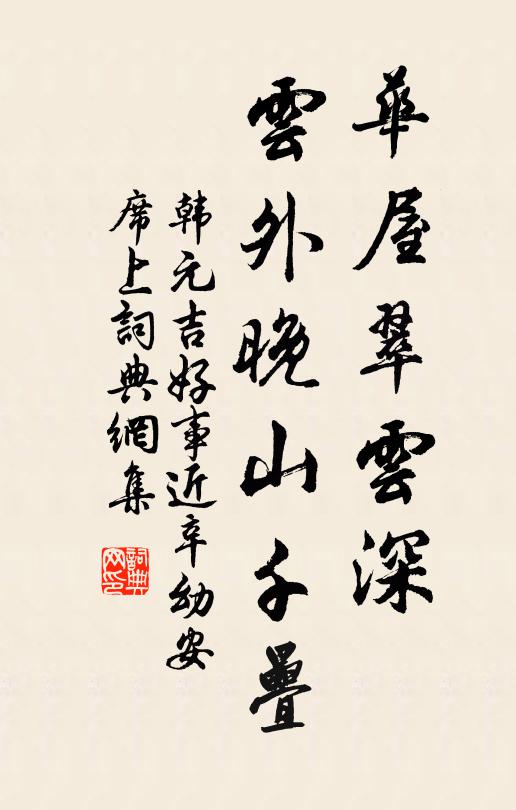 華屋翠雲深
雲外晚山千疊
韩元吉好事近辛幼安
席上詞典網集
詞典网印